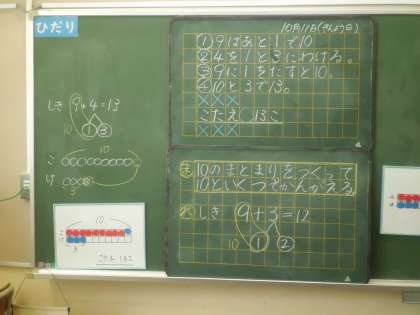 ひだり
しき 9+4=13
10 1 3
10
こ
け
3
10
こ
け
3
こたえ 13こ
10月11日(きんようび)
①9はあと1で10。
②4を1と3にわける。
③9に1をたすと10。
④10と3で13。
こたえ 13こ
ま 10のまとまりをつくって
10といくつでかんがえる。
しき 9+3=12
10 1 2